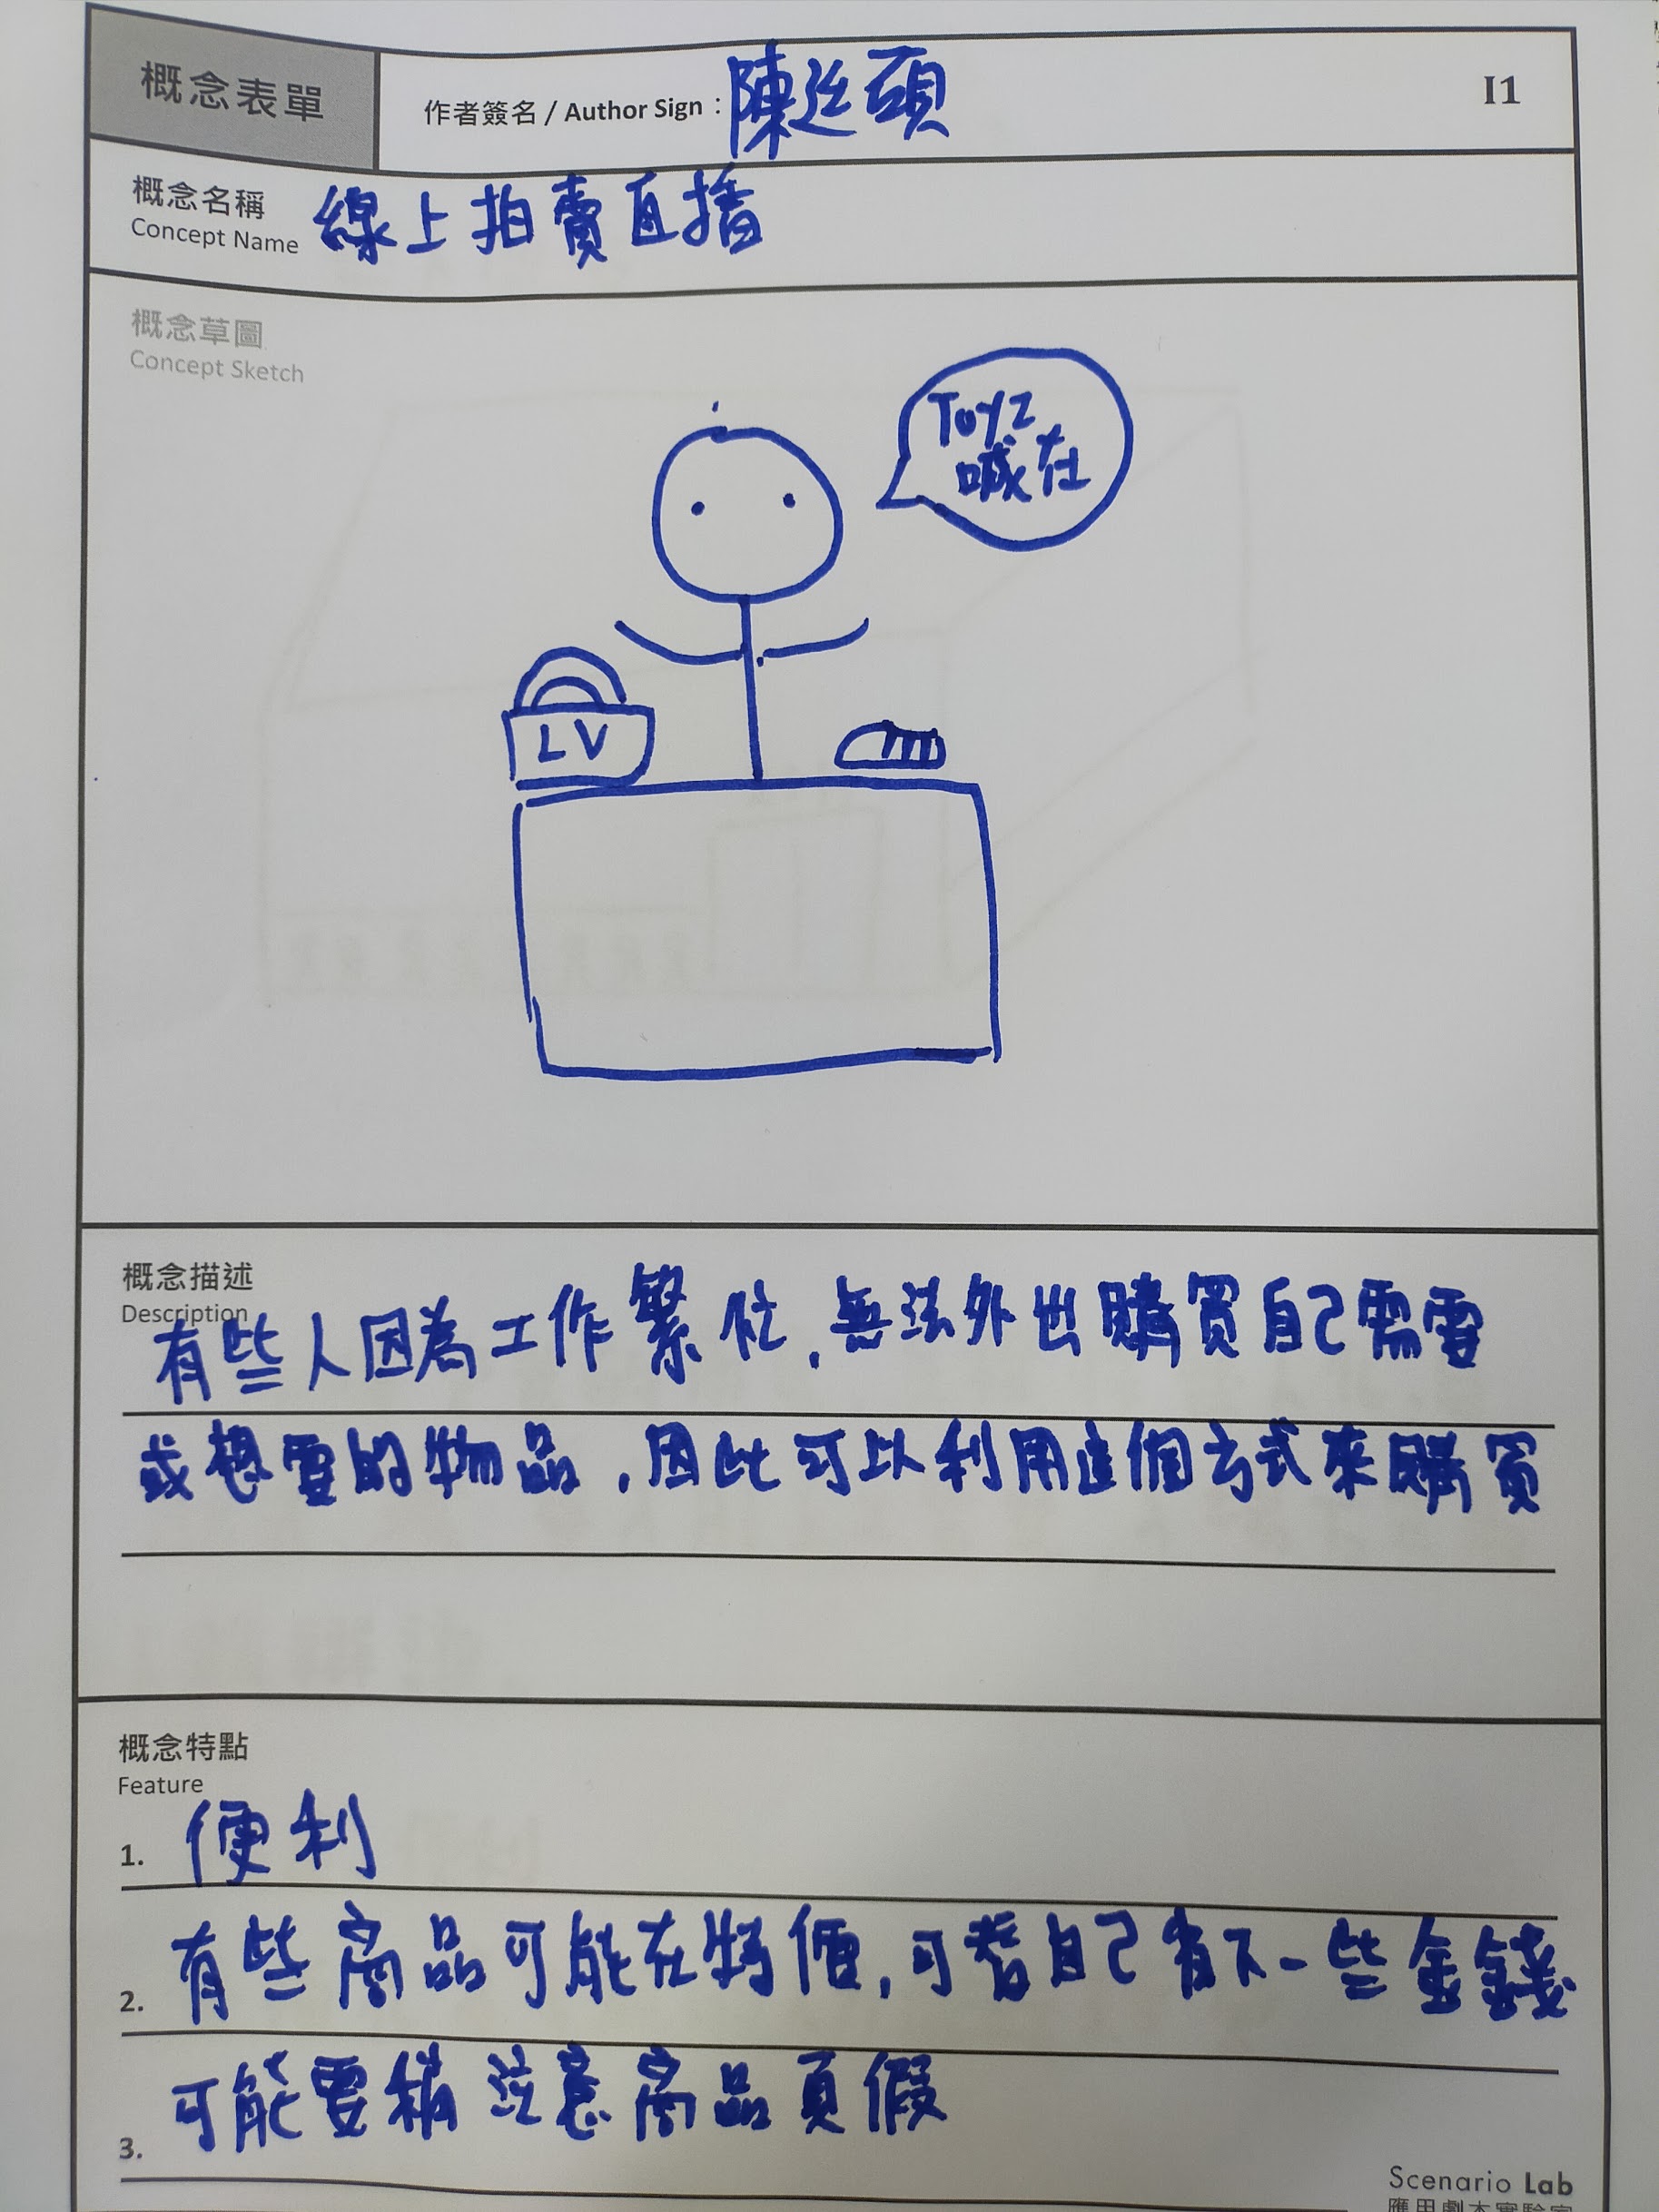 概念表單
作者簽名 / Author Sign：陳廷頭
I1
概念名稱 線上拍賣直播
Concept Name
概念草圖
Concept Sketch
Toyz
喊在
LV
概念描述
Description
有些人因為工作繁忙，無法外出購買自己需要
或想要的物品，因此可以利用這個方式來購買
概念特點
Feature
1. 便利
2. 有些商品可能在特價，可替自己省下一些金錢
3. 可能要稍注意商品真假
Scenario Lab
應用劇本實驗室